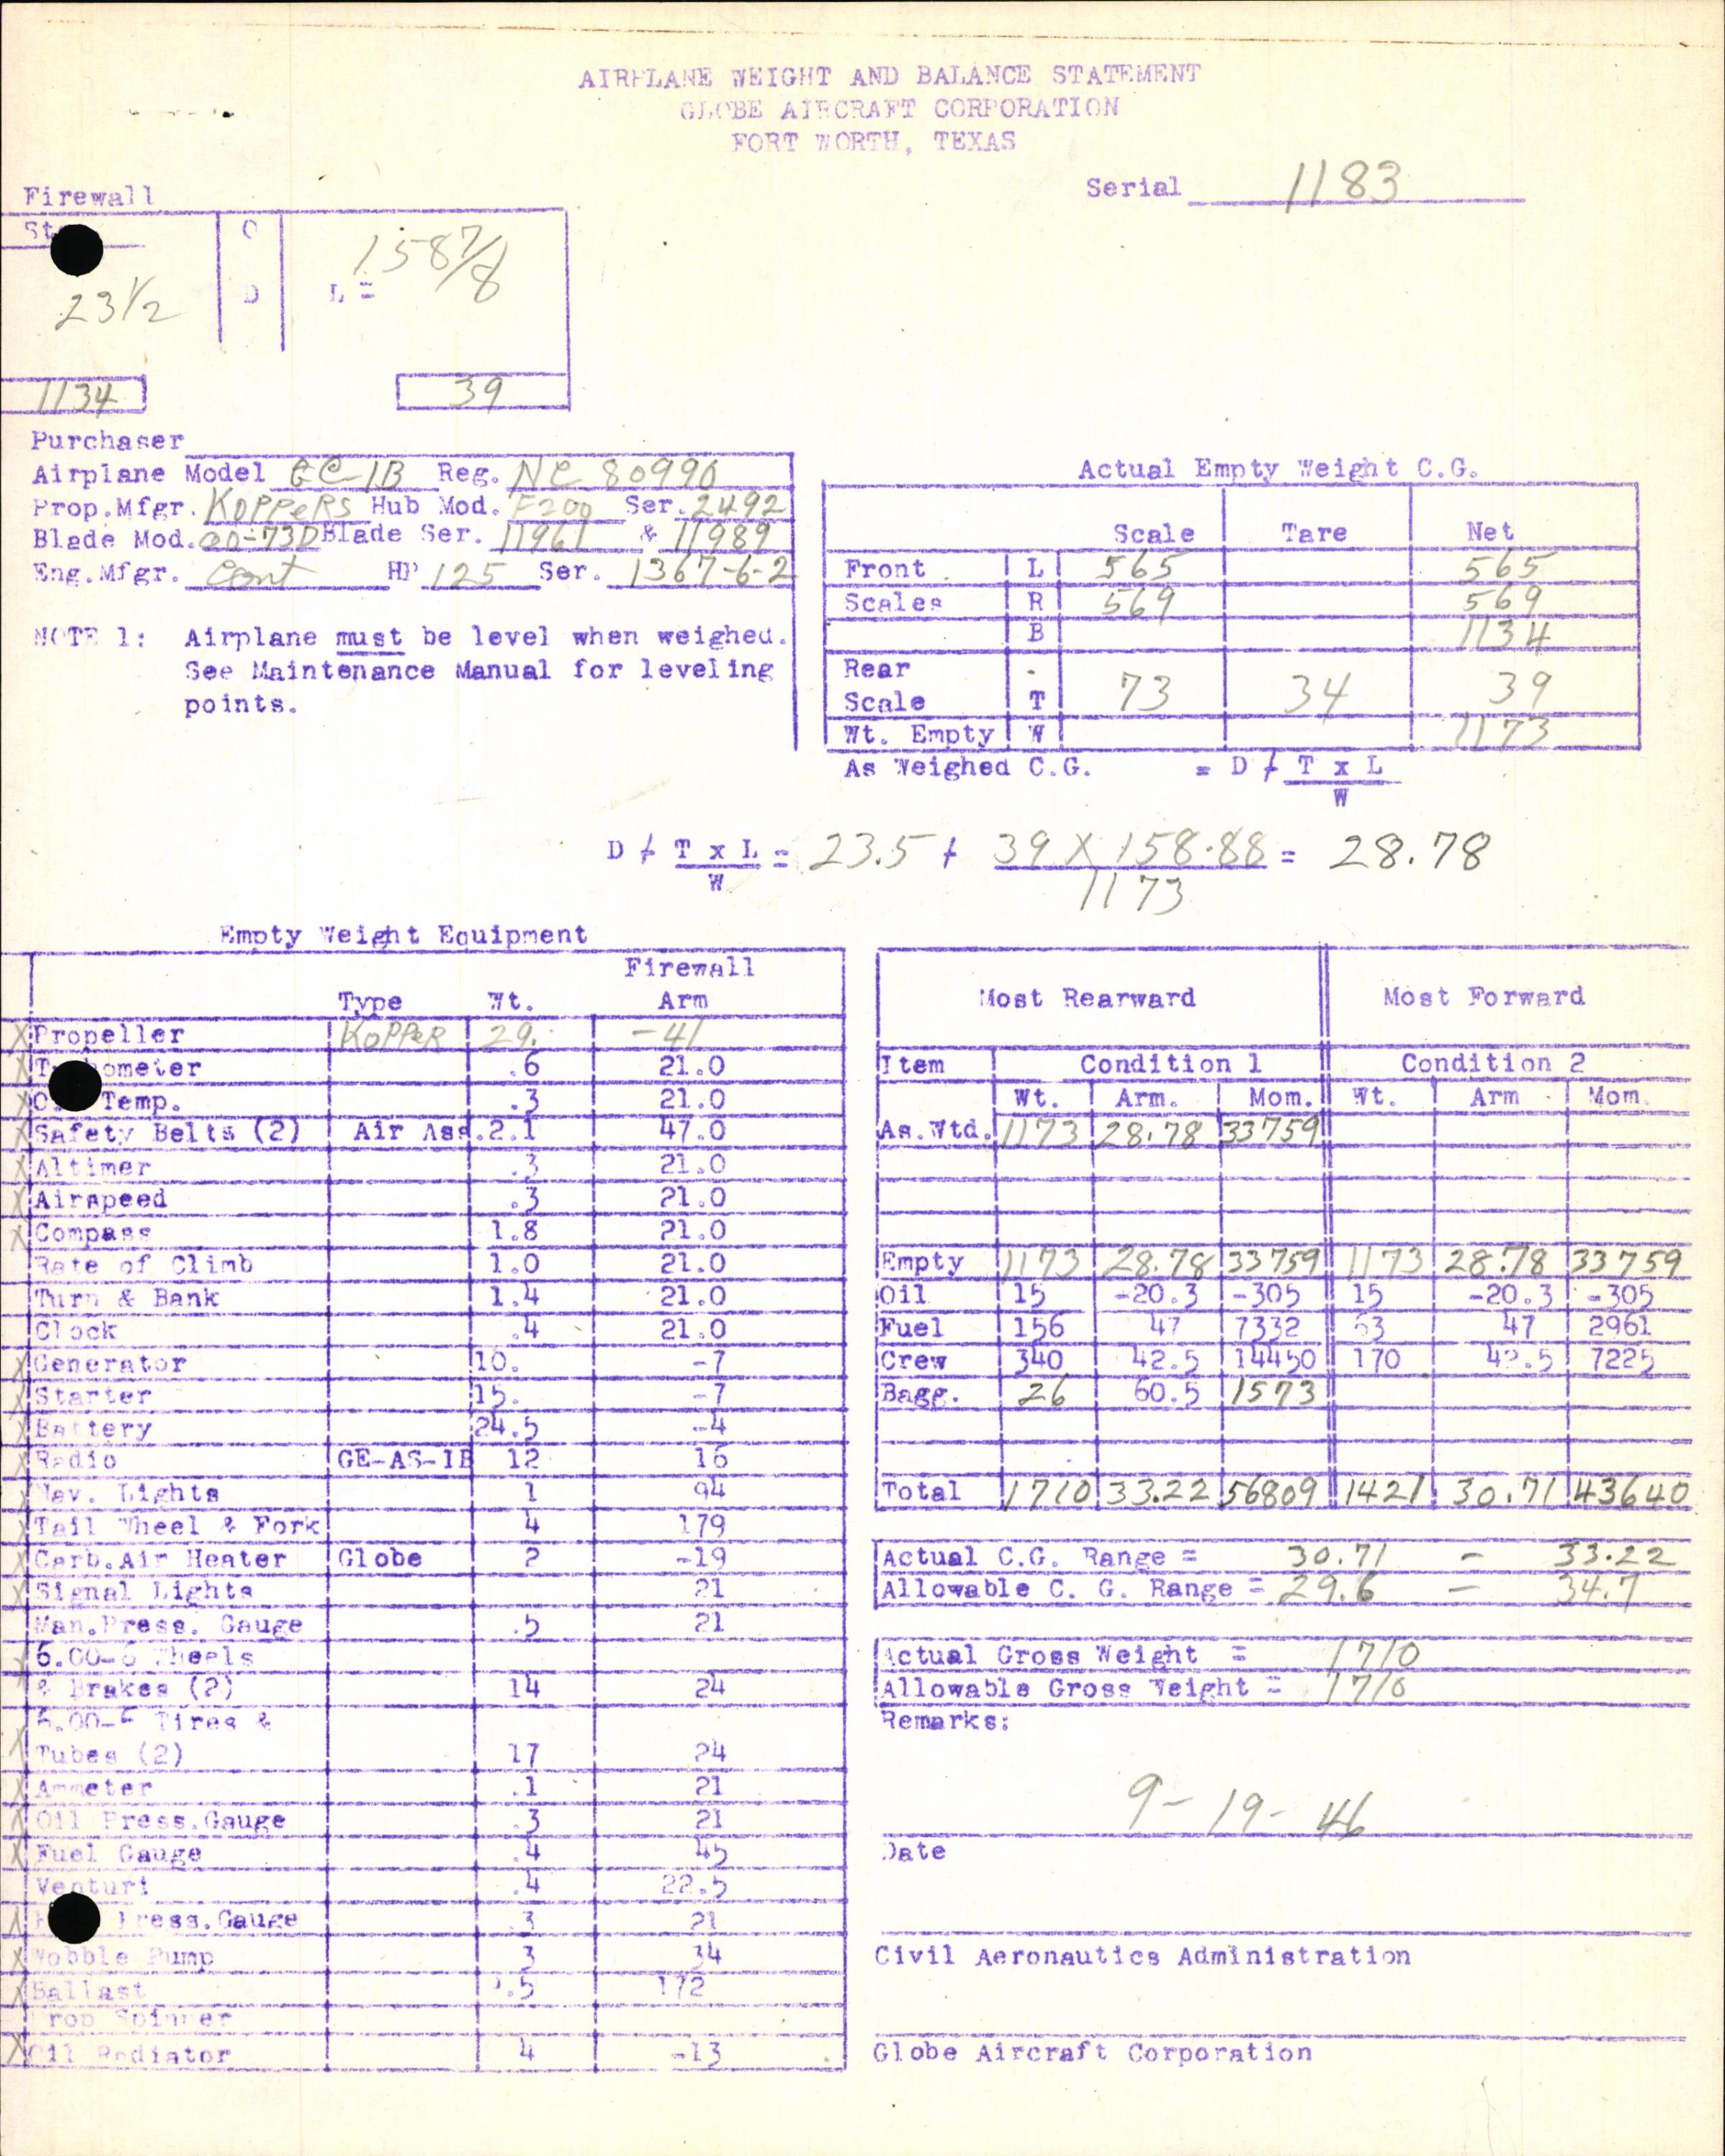 AIRPLANE WEIGHT AND BALANCE STATEMENT
GLOBE AIRCRAFT CORPORATION
FORT WORTH, TEXAS
Serial 1183
Firewall
O
158 7/8
23 1/2 D L =
1134 39
Purchaser
Airplane Model GC-1B Reg. NC 80990
Prop.Mfgr. KOPPERS Hub Mod. F200 Ser. 2492
Blade Mod. 00-73D Blade Ser. 11961 & 11989
Eng.Mfgr. Cont HP 125 Ser. 1367-6-2
NOTE 1: Airplane must be level when weighed.
See Maintenance Manual for leveling
points.
Actual Empty Weight C.G.
Scale Tare Net
Front L 565 565
Scales R 569 569
B 1134
Rear
Scale T 73 34 39
Wt. Empty W 1173
As Weighed C.G. = D / T x L
W
D / T x L = 23.5 + 39 X 158.88 = 28.78
W 1173
Empty Weight Equipment
Firewall
Type Wt. Arm
X Propeller KOPPER 29. -41
X ometer .6 21.0
X Temp. .3 21.0
X Safety Belts (2) Air Ass. 2.1 47.0
X Altimer .3 21.0
X Airspeed .3 21.0
X Compass 1.8 21.0
Rate of Climb 1.0 21.0
Turn & Bank 1.4 21.0
Clock .4 21.0
X Generator 10. -7
X Starter 15. -7
X Battery 24.5 -4
X Radio GE-AS-1B 12 16
X Nav. Lights 1 94
X Tail Wheel & Fork 4 179
X Carb.Air Heater Globe 2 -19
X Signal Lights 21
Man.Press. Gauge .5 21
X 6.00-6 Wheels
& Brakes (2) 14 24
X 6.00-6 Tires &
Tubes (2) 17 24
X Ammeter .1 21
X Oil Press.Gauge .3 21
X Fuel Gauge .4 45
Venturi .4 22.5
X Press.Gauge .3 21
X Wobble Pump 3 34
X Ballast .5 172
Prop Spinner
X Oil Radiator 4 -13
Most Rearward Most Forward
Item Condition 1 Condition 2
Wt. Arm. Mom. Wt. Arm Mom.
As.Wtd. 1173 28.78 33759
Empty 1173 28.78 33759 1173 28.78 33759
Oil 15 -20.3 -305 15 -20.3 -305
Fuel 156 47 7332 63 47 2961
Crew 340 42.5 14450 170 42.5 7225
Bagg. 26 60.5 1573
Total 1710 33.22 56809 1421 30.71 43640
Actual C.G. Range = 30.71 - 33.22
Allowable C. G. Range = 29.6 - 34.7
Actual Gross Weight = 1710
Allowable Gross Weight = 1710
Remarks:
9-19-46
Date
Civil Aeronautics Administration
Globe Aircraft Corporation